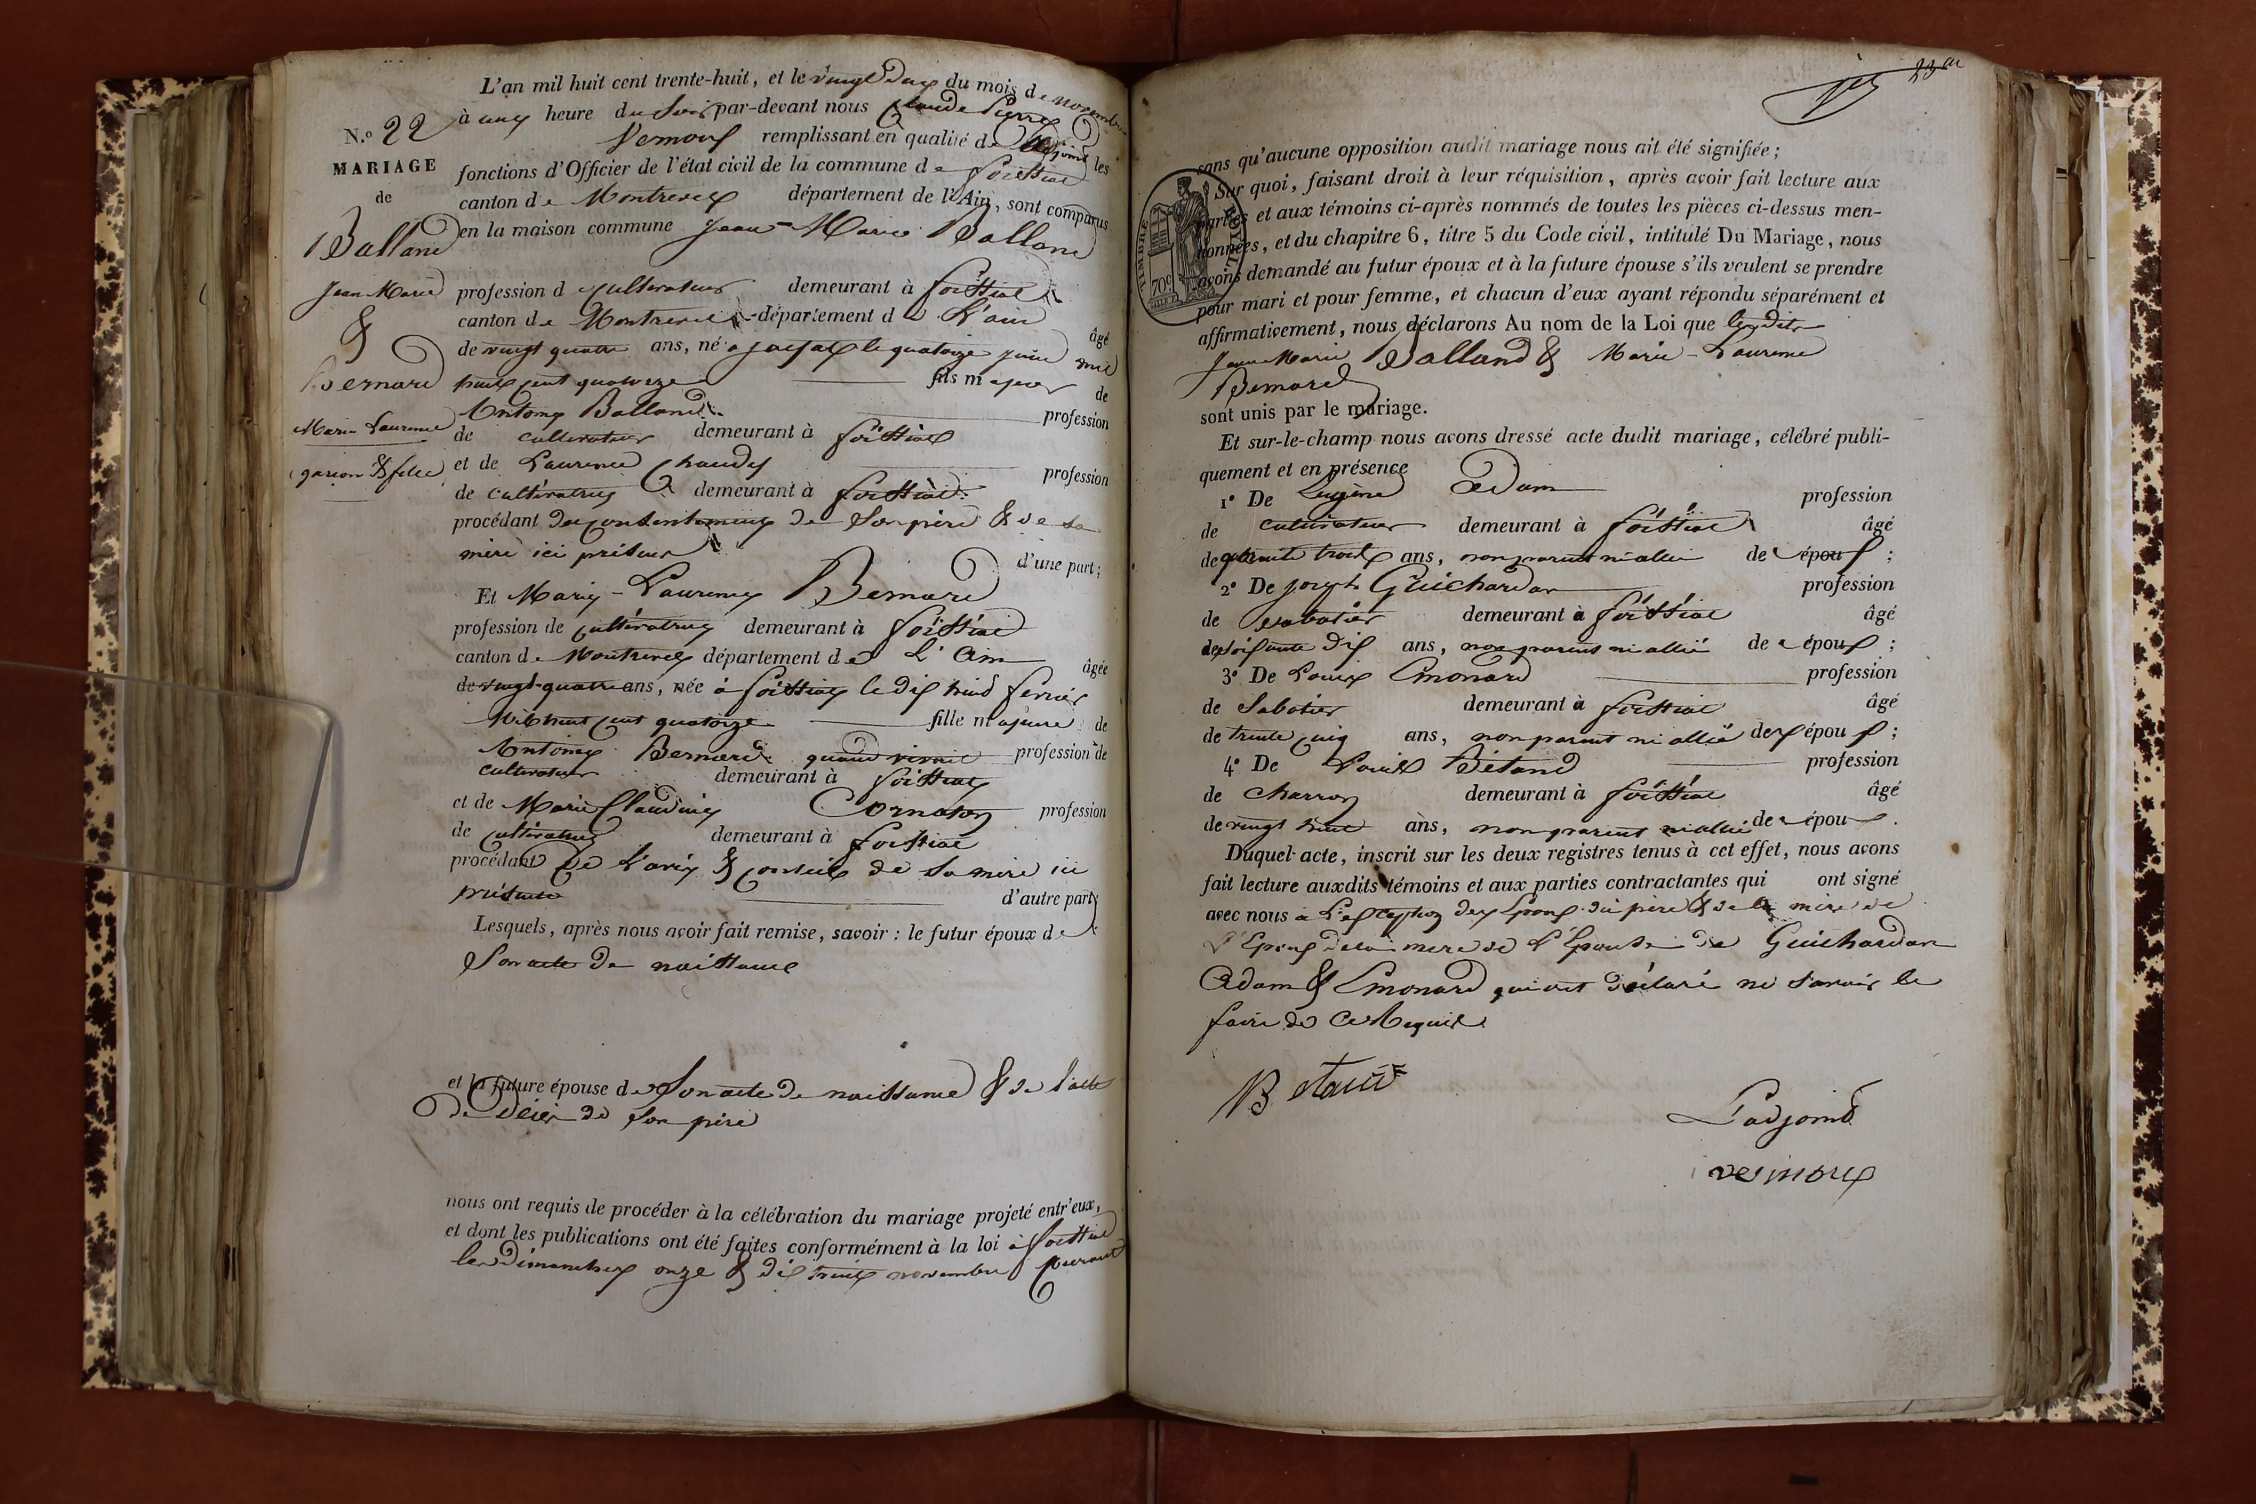 N.o 22
MARIAGE
de
Balland
Jean Marie
&
Bernard
Marie Laurence
garçon & fille
L'an mil huit cent trente-huit, et le vingt deux du mois de novembre
à une heure du soir par-devant nous Claude Pierre
Vernoux remplissant en qualité d'adjoint les
fonctions d'Officier de l'état civil de la commune de foissiat
canton de Montrevel département de l'Ain, sont comparus
en la maison commune Jean-Marie Balland
profession d cultivateur demeurant à foissiat
canton de Montrevel département d e L'ain âgé
de vingt quatre ans, né a jayat le quatorze juin mil
huit cent quatorze fils majeur de
Antoine Balland profession
de cultivateur demeurant à foissiat
et de Laurence Chaudy profession
de cultivatrice demeurant à foissiat
procédant du consentement de son père & de sa
mère ici présens d'une part;
Et Marie-Laurence Bernard
profession de cultivatrice demeurant à foissiat
canton de Montrevel département de L'Ain âgée
de vingt-quatre ans, née à foissiat le dix huit fevrier
Mil huit cent quatorze fille majeure de
Antoine Bernard quand vivait profession de
cultivateur demeurant à foissiat
et de Marie Claudine Cornaton profession
de cultivatrice demeurant à foissiat
procédant De L'avis & conseil de sa mère ici
présente d'autre part;
Lesquels, après nous avoir fait remise, savoir : le futur époux de
Son acte de naissance
et la future épouse de Son acte de naissance & de l'acte
de décès de son père
nous ont requis de procéder à la célébration du mariage projeté entr'eux,
et dont les publications ont été faites conformément à la loi à foissiat
les Dimanches onze & dix huit novembre courant
23
TIMBRE ROYAL
70c
sans qu'aucune opposition audit mariage nous ait été signifiée ;
Sur quoi, faisant droit à leur réquisition, après avoir fait lecture aux
parties et aux témoins ci-après nommés de toutes les pièces ci-dessus men-
tionnées, et du chapitre 6, titre 5 du Code civil, intitulé Du Mariage, nous
avons demandé au futur époux et à la future épouse s'ils veulent se prendre
pour mari et pour femme, et chacun d'eux ayant répondu séparément et
affirmativement, nous déclarons Au nom de la Loi que lesdits
Jean Marie Balland & Marie-Laurence
Bernard
sont unis par le mariage.
Et sur-le-champ nous avons dressé acte dudit mariage, célébré publi-
quement et en présence
1° De Eugène Adam profession
de cultivateur demeurant à foissiat âgé
de trente trois ans, non parent ni allié des époux ;
2° De joseph Guichardan profession
de sabotier demeurant à foissiat âgé
de soixante dix ans, non parent ni allié des époux ;
3° De Louis Emonard profession
de Sabotier demeurant à foissiat âgé
de trente cinq ans, non parent ni allié des époux ;
4° De Louis Bétand profession
de charron demeurant à foissiat âgé
de vingt huit ans, non parent ni allié des époux .
Duquel acte, inscrit sur les deux registres tenus à cet effet, nous avons
fait lecture auxdits témoins et aux parties contractantes qui ont signé
avec nous a L'exception des Epoux du père & de la mère de
L'Epoux de la mère de l'Epouse de Guichardan
Adam & Emonard qui ont déclaré ne savoir le
faire de ce Requis
L'adjoint
vernoux